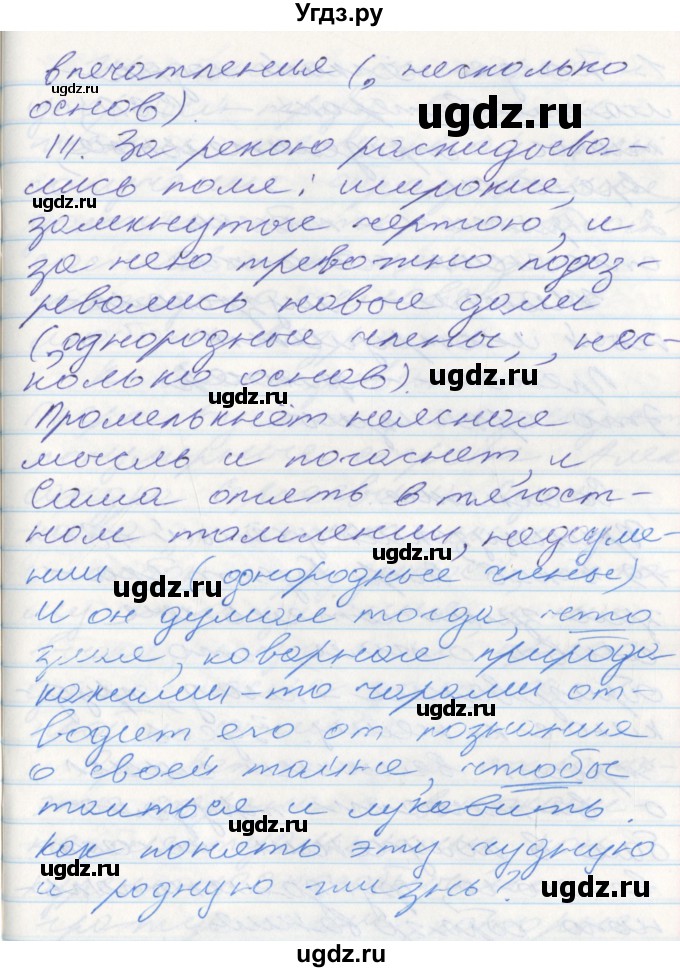 Угдз.ру
впечатления (, несколько
основ).
III. За рекою раскидыва-
лись поля; широкие,
замкнутые чертою, и
за нею тревожно подоз-
ревались новые дали
(, однородные члены, , нес-
колько основ).
Промелькнёт неясная
мысль и погаснет, и
Саша опять в тягост-
ном томлении, недоуме-
нии (однородные члены)
И он думал тогда, что
злая, коварная природа
какими-то чарами от-
водит его от познания
о своей тайне, чтобы
таиться и лукавить.
Как понять эту чудную
и родную жизнь?
ugdz.ru
ugdz.ru
ugdz.ru
ugdz.ru
ugdz.ru
ugdz.ru
ugdz.ru
ugdz.ru
ugdz.ru
ugdz.ru
ugdz.ru
ugdz.ru